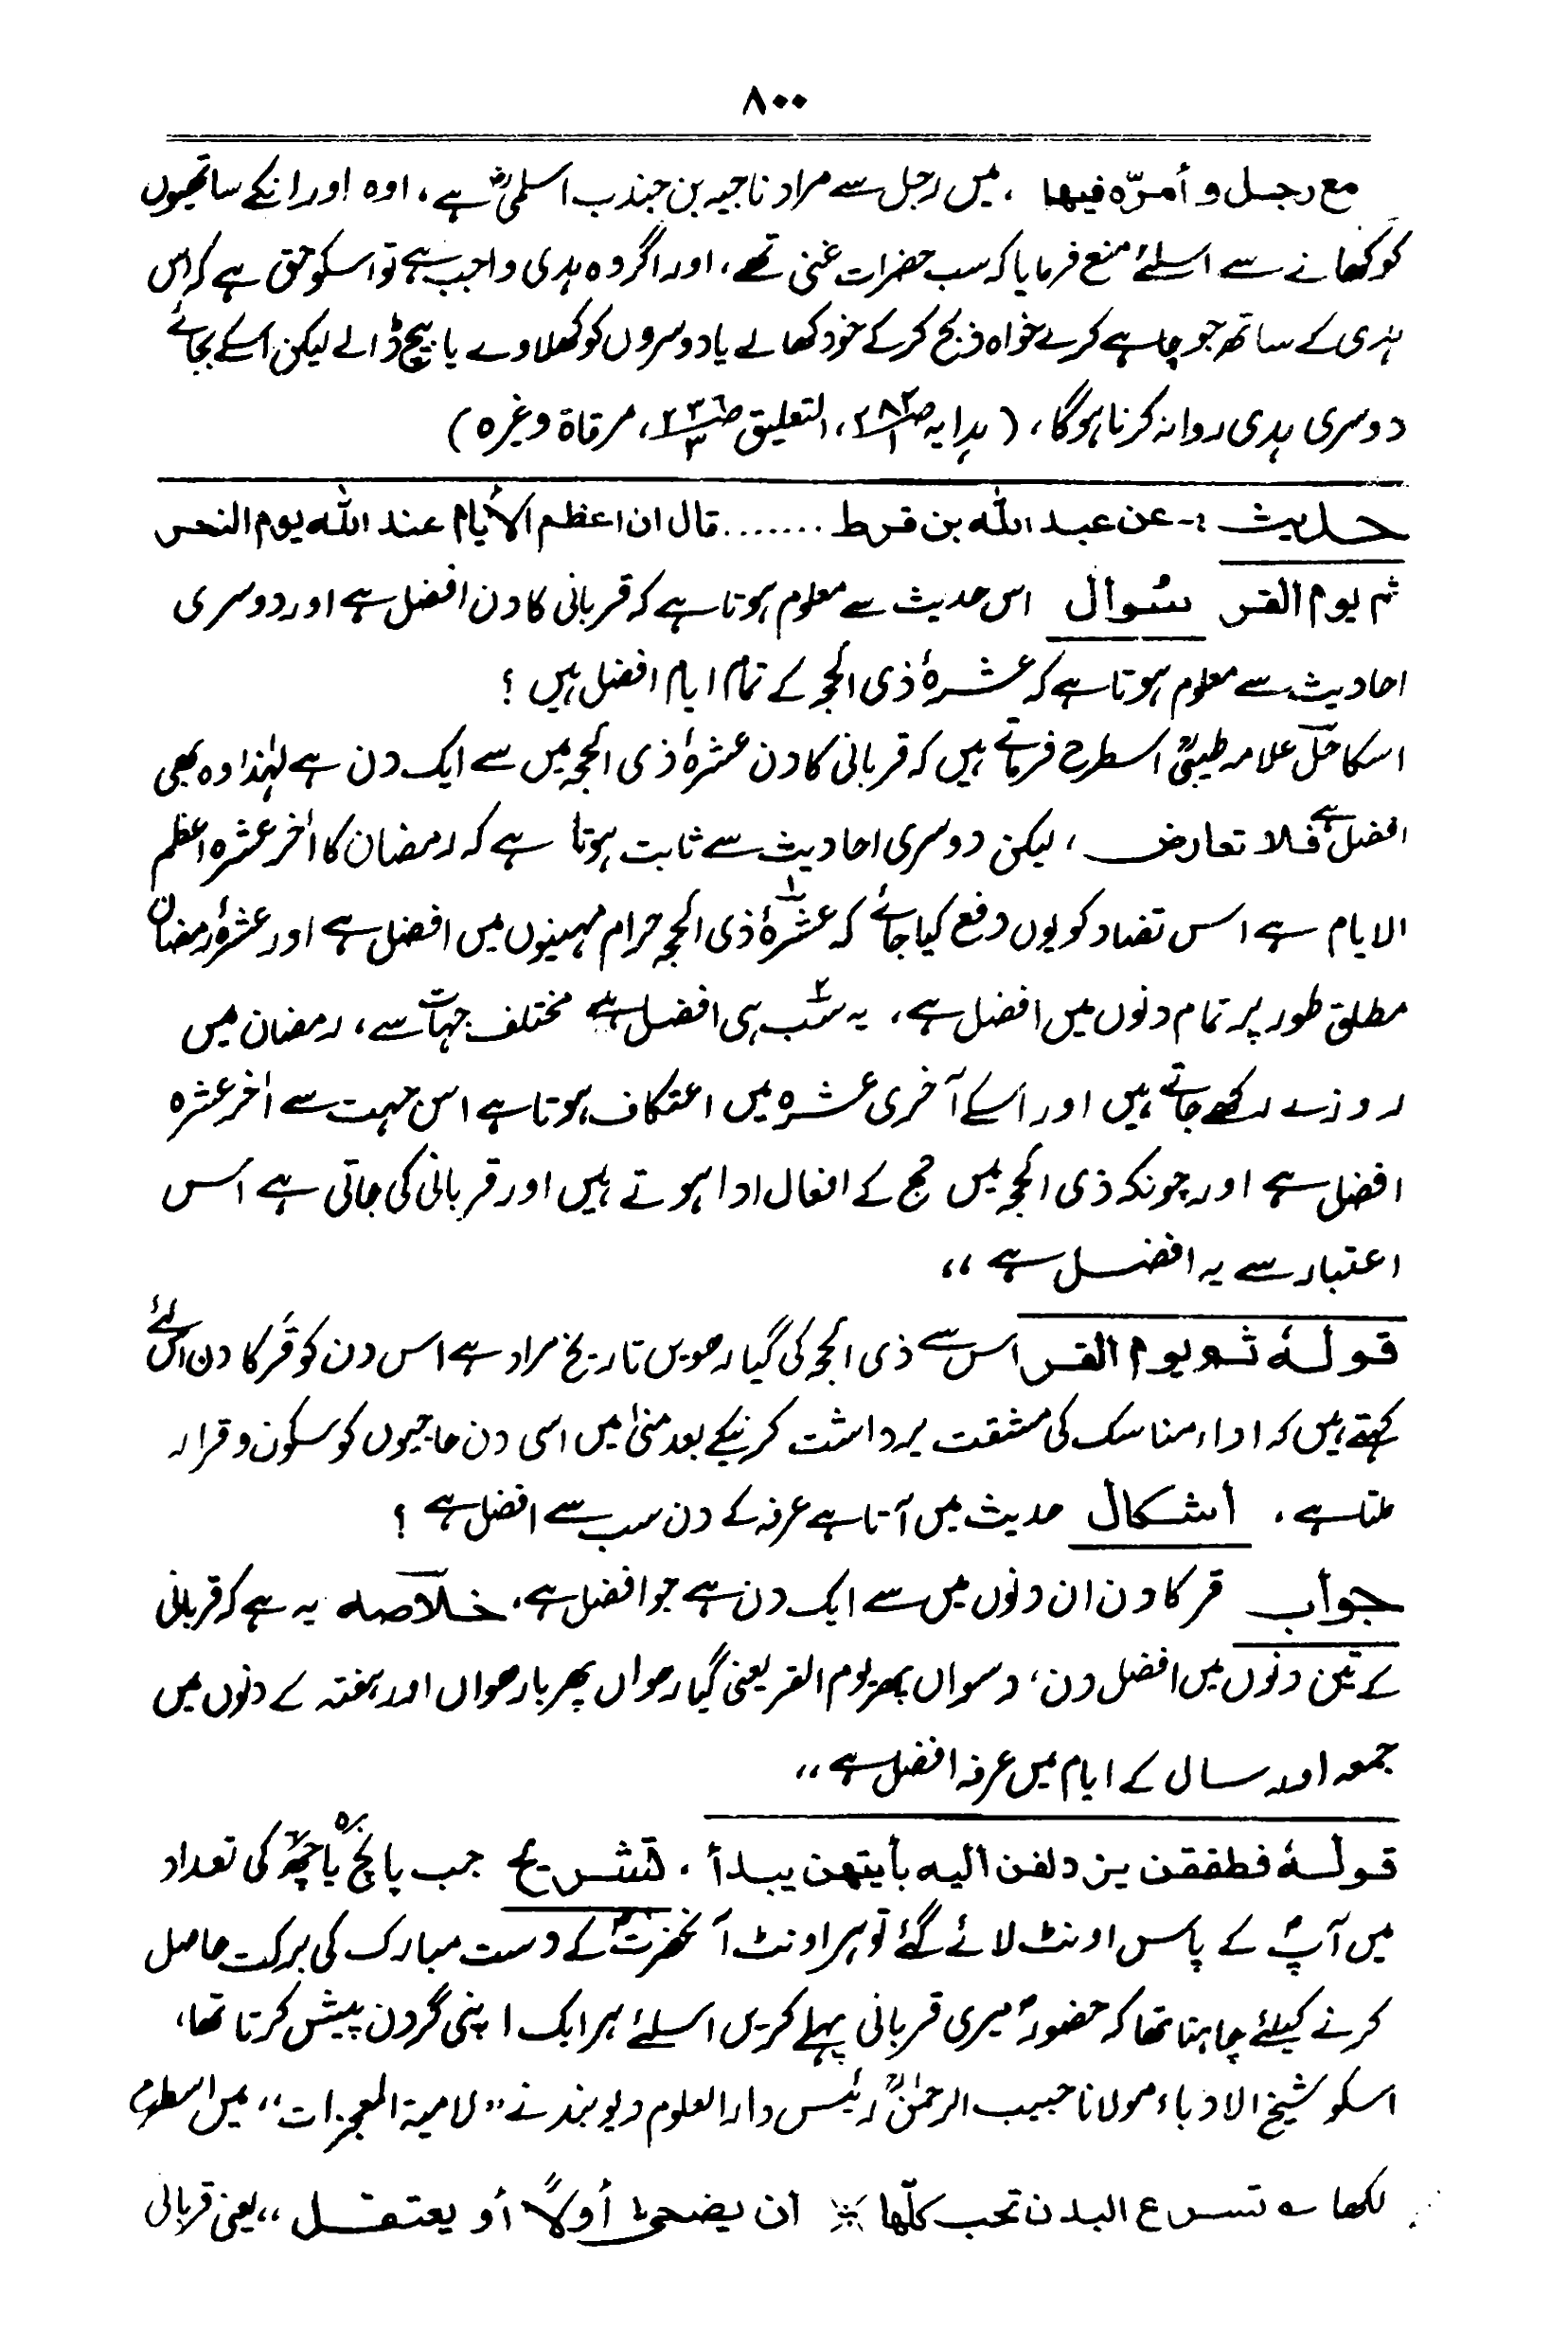 ۸۰۰
مع رجل و أمرّہ فیھا ، میں رجل سے مراد ناجیہ بن جندب اسلمیؓ ہے ، اوہ اور انکے ساتھیوں
کو کھانے سے اسلئے منع فرمایا کہ سب حضرات غنی تھے ، اور اگر وہ ہدی واجب ہے تو اسکو حق ہے کہ اس
ہدی کے ساتھ جو چاہے کرے خواہ ذبح کر کے خود کھالے یا دوسروں کو کھلاوے یا بیچ ڈالے لیکن اسکے بجائے
دوسری ہدی روانہ کرنا ہوگا ، ( ہدایہ ، التعلیق ، مرقاۃ وغیرہ )
حدیث :- عن عبد اللّٰہ بن قرط ........ قال ان اعظم الأیام عند اللّٰہ یوم النحر
ثم یوم القر سُوال اس حدیث سے معلوم ہوتا ہے کہ قربانی کا دن افضل ہے اور دوسری
احادیث سے معلوم ہوتا ہے کہ عشرۂ ذی الحجہ کے تمام ایام افضل ہیں ؟
اسکا حل علامہ طیبیؒ اسطرح فرماتے ہیں کہ قربانی کا دن عشرۂ ذی الحجہ میں سے ایک دن ہے لہٰذا وہ بھی
افضل ہے فلا تعارض ، لیکن دوسری احادیث سے ثابت ہوتا ہے کہ رمضان کا اٰخر عشرہ اعظم
الایام ہے اس تضاد کو یوں دفع کیا جائے کہ ۱ عشرۂ ذی الحجہ حرام مہینوں میں افضل ہے اور عشرۂ رمضان
مطلق طور پر تمام دنوں میں افضل ہے ، ۲ یہ سب ہی افضل ہے مختلف جہات سے ، رمضان میں
روزے رکھے جاتے ہیں اور اسکے آخری عشرہ میں اعتکاف ہوتا ہے اس جہت سے اٰخر عشرہ
افضل ہے اور چونکہ ذی الحجہ میں حج کے افعال ادا ہوتے ہیں اور قربانی کی جاتی ہے اس
اعتبار سے یہ افضل ہے ،،
قولہٗ ثم یوم القر اس سے ذی الحجہ کی گیارھویں تاریخ مراد ہے اس دن کو قَر کا دن اس لئے
کہتے ہیں کہ اداء مناسک کی مشقت برداشت کرنیکے بعد منیٰ میں اسی دن حاجیوں کو سکون و قرار
ملتا ہے ، أشکال حدیث میں آتا ہے عرفہ کے دن سب سے افضل ہے ؟
جواب قر کا دن ان دنوں میں سے ایک دن ہے جو افضل ہے ، خلاصہ یہ ہے کہ قربانی
کے تین دنوں میں افضل دن ، دسواں پھر یوم القر یعنی گیارھواں پھر بارھواں اور ہفتہ کے دنوں میں
جمعہ اور سال کے ایام میں عرفہ افضل ہے ،،
قولہٗ فطفقن یزدلفن الیہ بأیتھن یبدأ ، تشریح جب پانچ ۵ یا چھ ۶ کی تعداد
میں آپؐ کے پاس اونٹ لائے گئے تو ہر اونٹ آنحضرتؐ کے دست مبارک کی برکت حاصل
کرنے کیلئے چاہتا تھا کہ حضورؐ میری قربانی پہلے کریں اسلئے ہر ایک اپنی گردن پیش کرتا تھا ،
اسکو شیخ الادباء مولانا حبیب الرحمٰنؒ رئیس دارالعلوم دیوبند نے ،،لامیۃ المعجزات،، میں اسطرح
لکھا ؎ تسرع البدن تحب کلّھا ٭ ان یضحیٰ أولاً أو یعتقل ،، یعنی قربانی